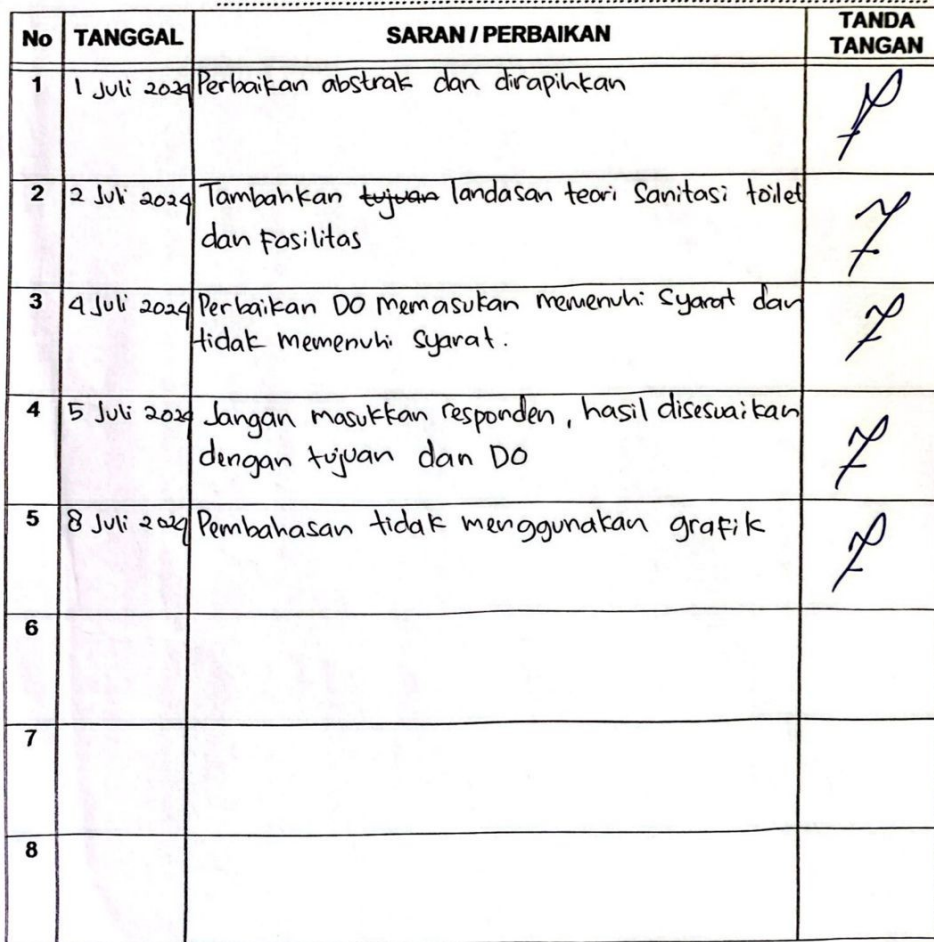 No TANGGAL SARAN / PERBAIKAN TANDA TANGAN
1 1 Juli 2024 Perbaikan abstrak dan dirapihkan
2 2 Juli 2024 Tambahkan tujuan landasan teori Sanitasi toilet
dan Fasilitas
3 4 Juli 2024 Perbaikan DO memasukan memenuhi Syarat dan
tidak memenuhi syarat.
4 5 Juli 2024 Jangan masukkan responden, hasil disesuaikan
dengan tujuan dan DO
5 8 Juli 2024 Pembahasan tidak menggunakan grafik
6
7
8